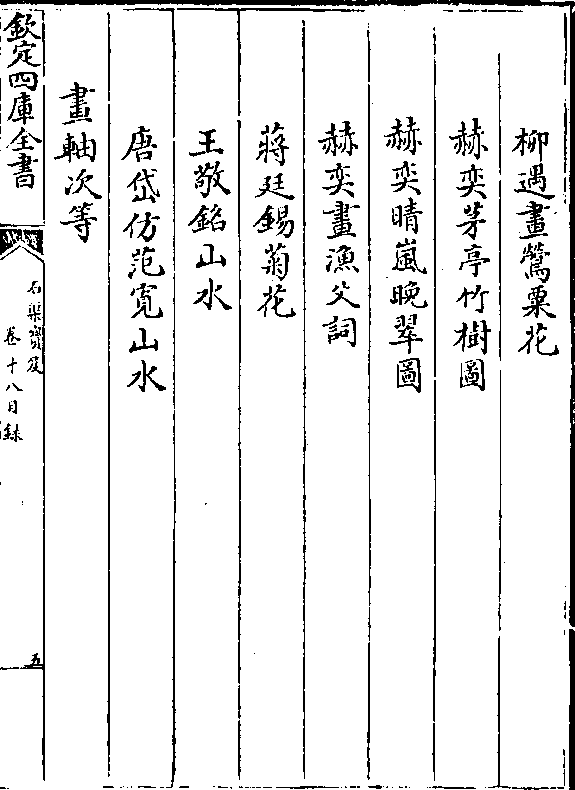 柳遇畫鶯粟花
赫奕茅亭竹樹圖
赫奕晴嵐晚翠圖
赫奕畫漁父詞
蔣廷錫菊花
王敬銘山水
唐岱仿范寛山水
畫軸次等
欽定四庫全書
石渠寶笈
卷十八目錄
五